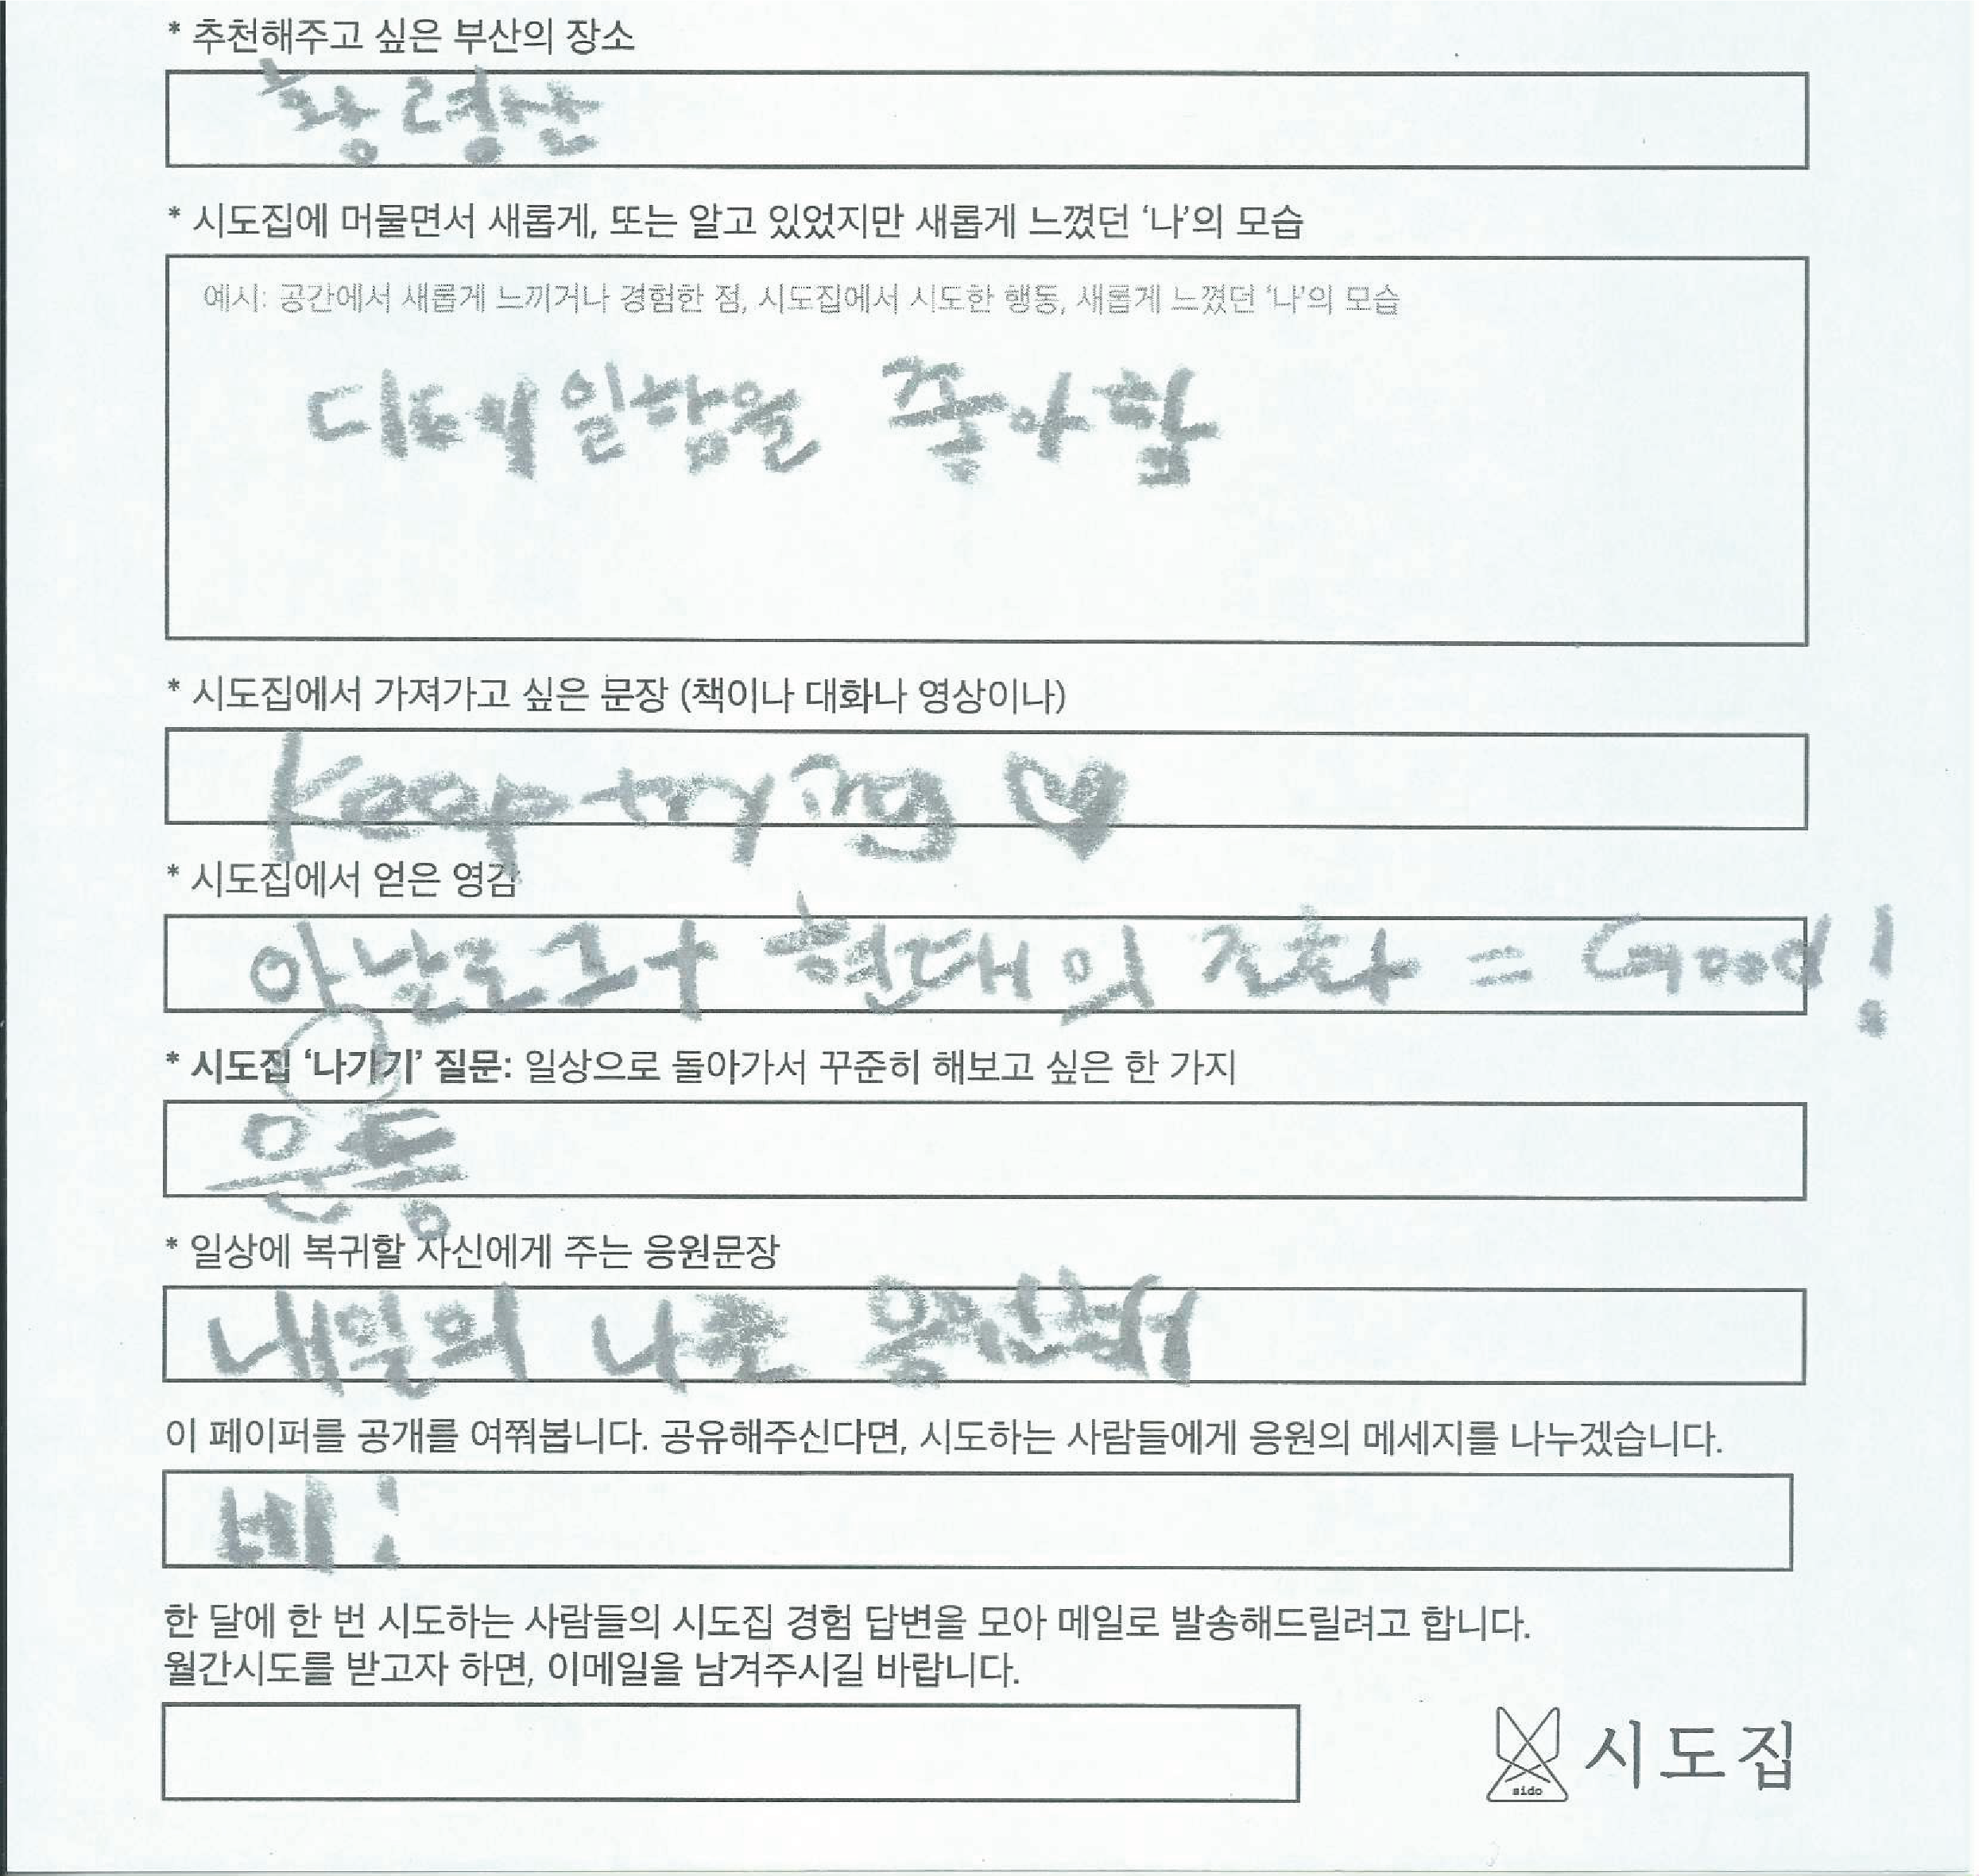 * 추천해주고 싶은 부산의 장소
황령산
* 시도집에 머물면서 새롭게, 또는 알고 있었지만 새롭게 느꼈던 ‘나’의 모습
예시: 공간에서 새롭게 느끼거나 경험한 점, 시도집에서 시도한 행동, 새롭게 느꼈던 ‘나’의 모습
디테일함을 좋아함
* 시도집에서 가져가고 싶은 문장 (책이나 대화나 영상이나)
Keep trying ♥
* 시도집에서 얻은 영감
아날로그+ 현대의 조화 = Good!
* 시도집 ‘나가기’ 질문: 일상으로 돌아가서 꾸준히 해보고 싶은 한 가지
운동
* 일상에 복귀할 자신에게 주는 응원문장
내일의 나로
이 페이퍼를 공개를 여쭤봅니다. 공유해주신다면, 시도하는 사람들에게 응원의 메세지를 나누겠습니다.
네!
한 달에 한 번 시도하는 사람들의 시도집 경험 답변을 모아 메일로 발송해드릴려고 합니다.
월간시도를 받고자 하면, 이메일을 남겨주시길 바랍니다.
sido
시도집